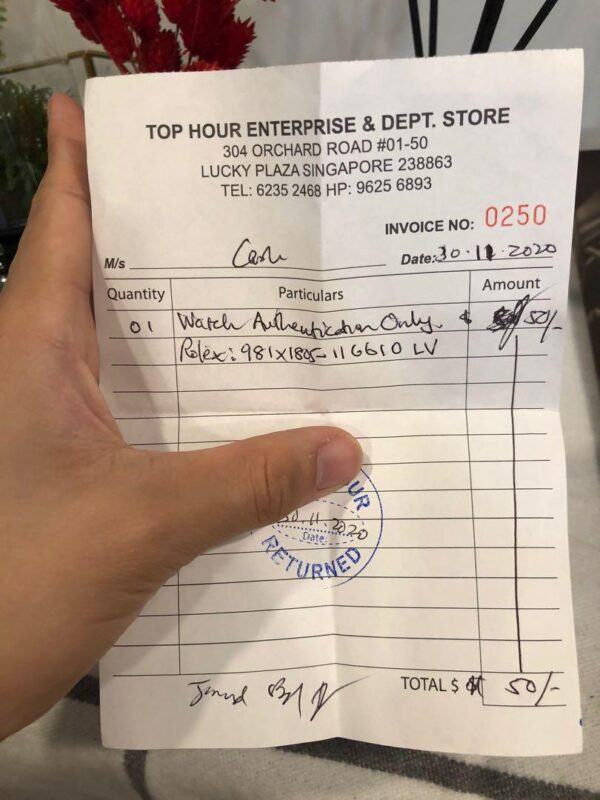 TOP HOUR ENTERPRISE & DEPT. STORE
304 ORCHARD ROAD #01-50
LUCKY PLAZA SINGAPORE 238863
TEL: 6235 2468 HP: 9625 6893
INVOICE NO: 0250
M/s Cash Date: 30.11.2020
Quantity Particulars Amount
01 Watch Authentication Only. $ 50/-
Rolex: 981X1805-116610 LV
UR
30.11.2020
Date:
RETURNED
TOTAL $ 50/-